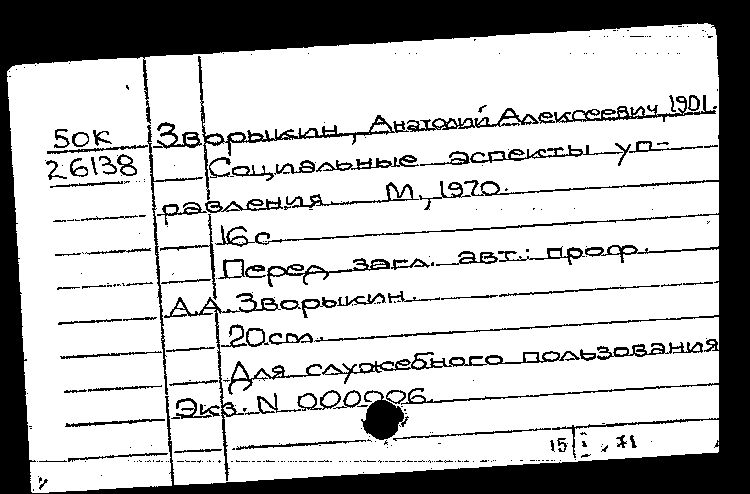 50К Зворыкин, Анатолий Алексеевич, 1901.
26138 Социальные аспекты уп-
равления М., 1970.
16с
Перед загл. авт.: проф.
А.А. Зворыкин.
20см.
Для служебного пользования
Экз. N 000006
15